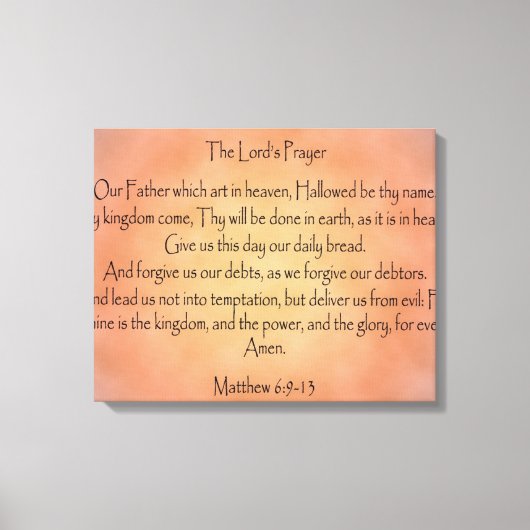 The Lord's Prayer
Our Father which art in heaven, Hallowed be thy name.
y kingdom come, Thy will be done in earth, as it is in hea
Give us this day our daily bread.
And forgive us our debts, as we forgive our debtors.
nd lead us not into temptation, but deliver us from evil: F
ine is the kingdom, and the power, and the glory, for eve
Amen.
Matthew 6:9-13